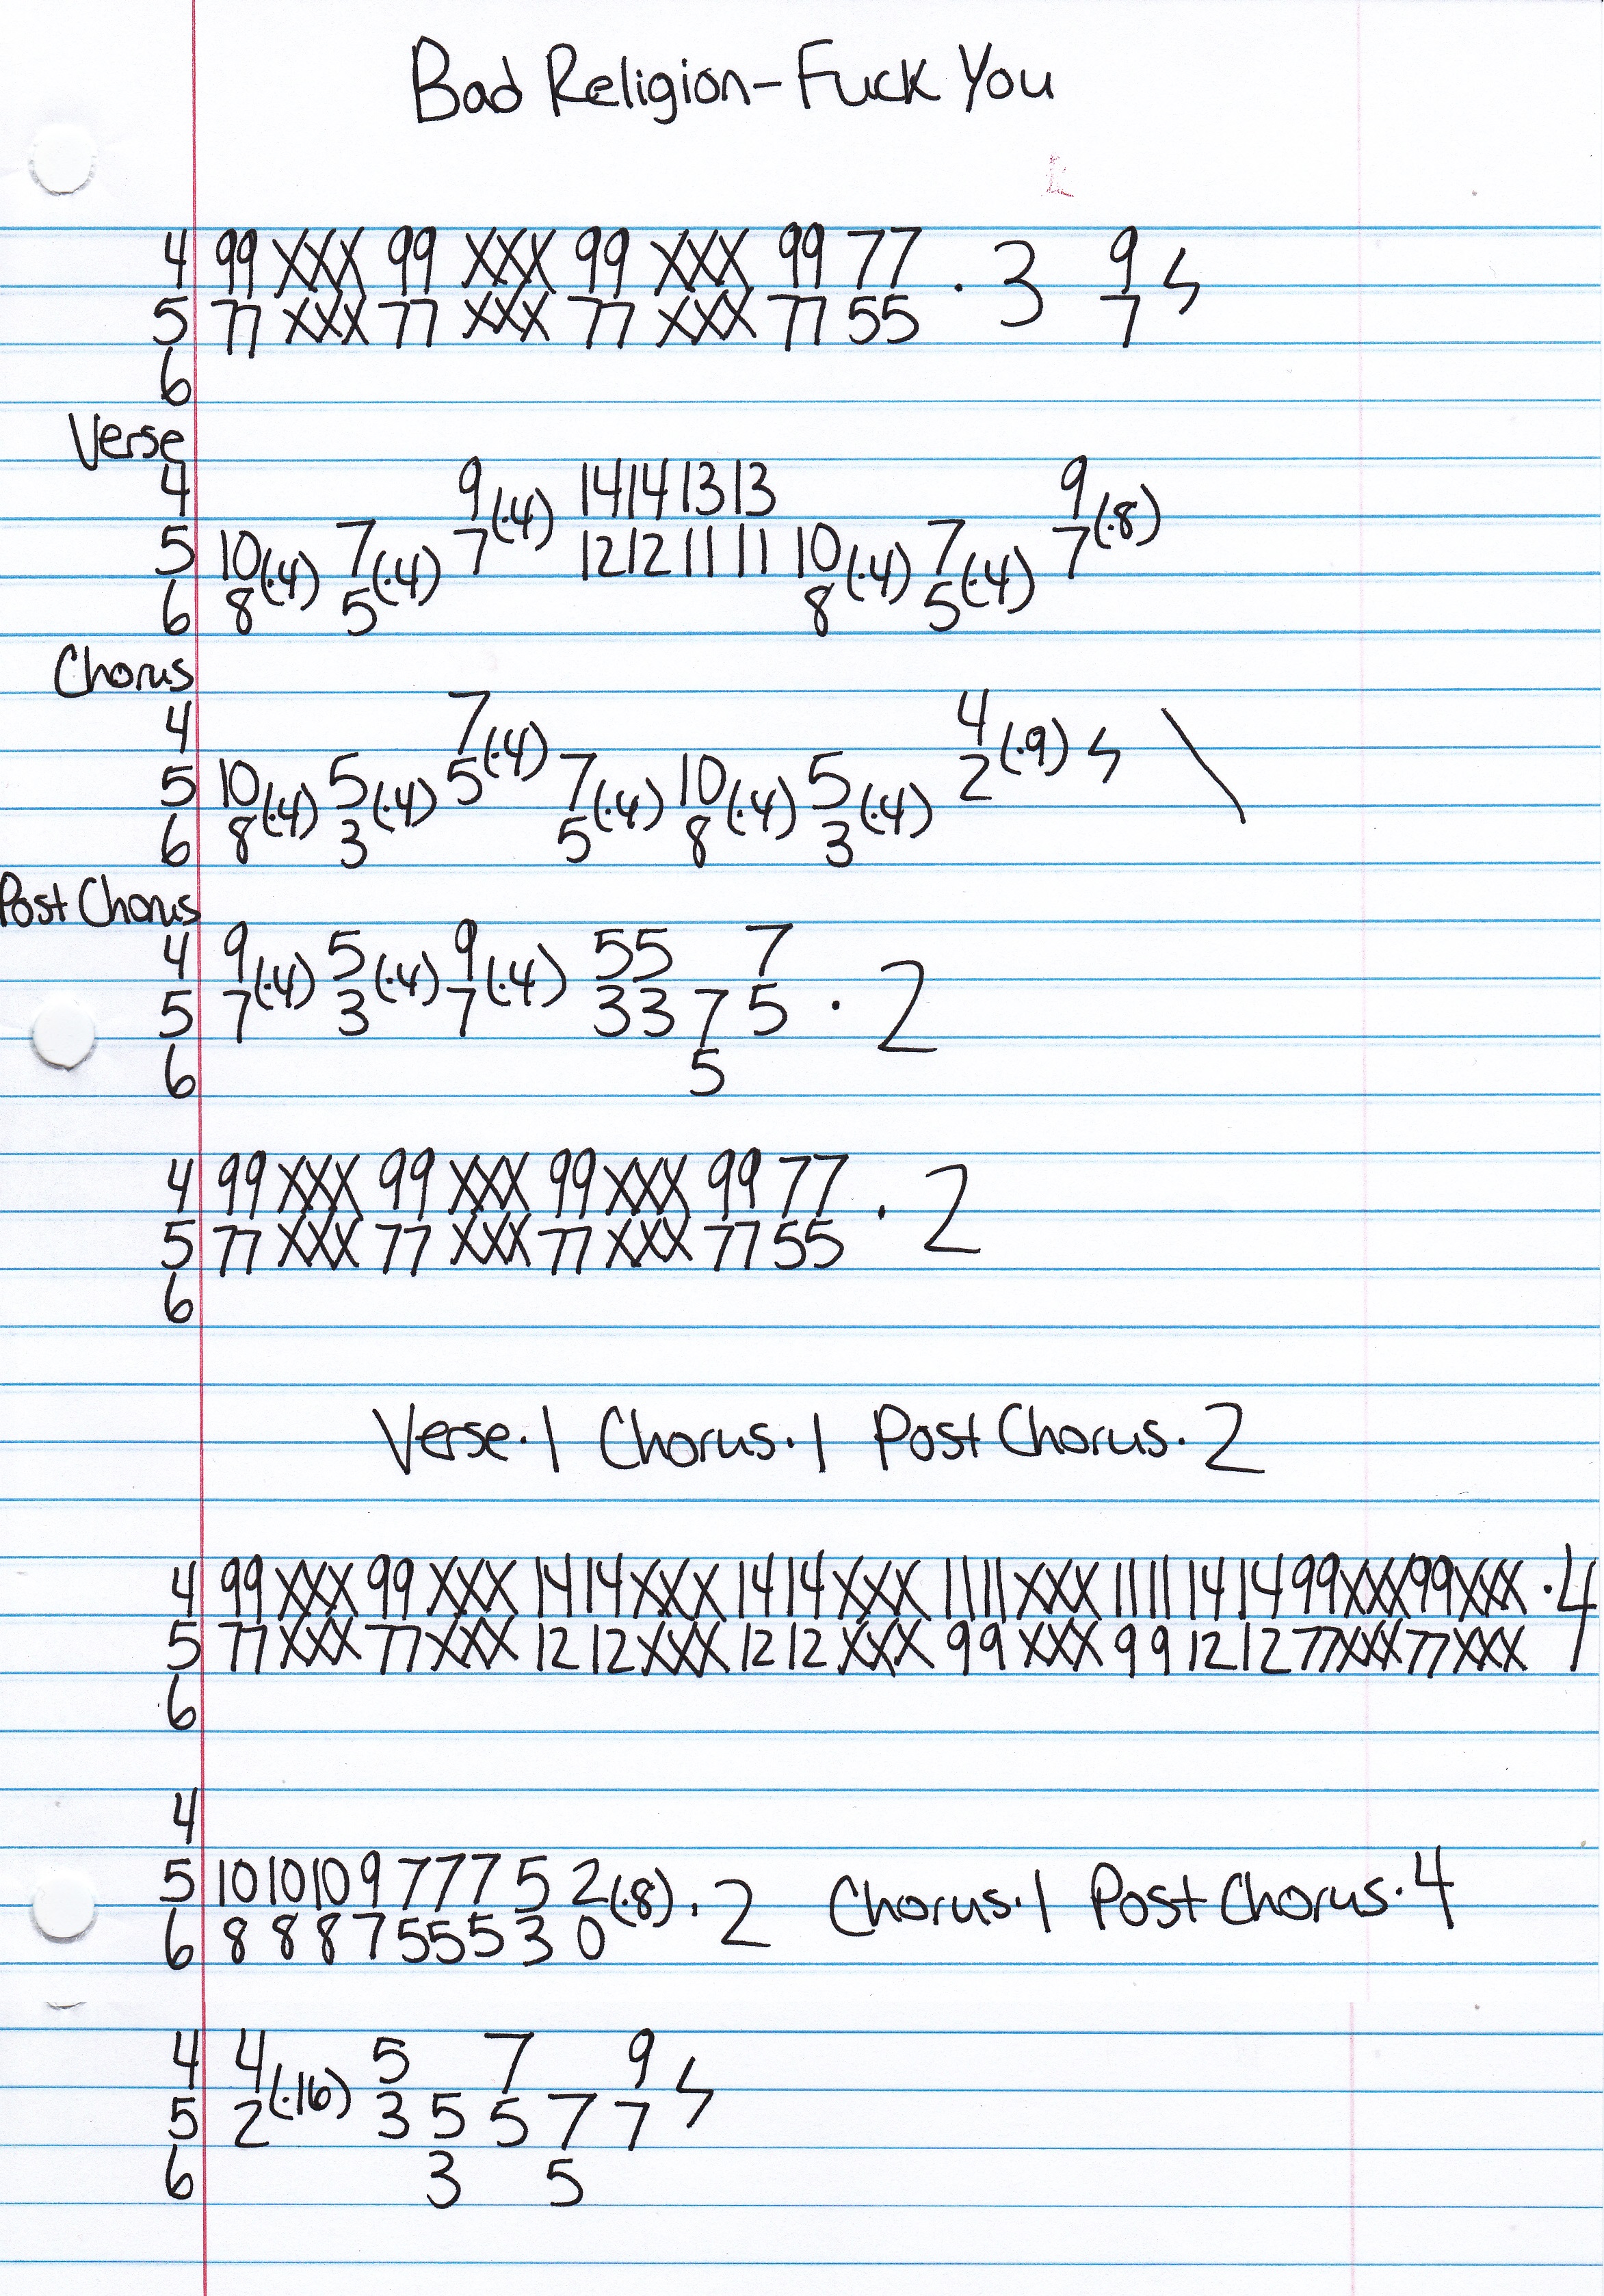 Bad Religion-Fuck You
4 99 XXX 99 XXX 99 XXX 99 77 · 3 9 ϟ
5 77 XXX 77 XXX 77 XXX 77 55 7
6
Verse
4 9(·4) 14 14 13 13 9(·8)
5 10(·4) 7(·4) 7 12 12 11 11 10(·4) 7(·4) 7
6 8 5 8 5
Chorus
4 7(·4) 4(·9) ϟ \
5 10(·4) 5(·4) 5 7(·4) 10(·4) 5(·4) 2
6 8 3 5 8 3
Post Chorus
4 9(·4) 5(·4) 9(·4) 55 7 · 2
5 7 3 7 33 7 5
6 5
4 99 XXX 99 XXX 99 XXX 99 77 · 2
5 77 XXX 77 XXX 77 XXX 77 55
6
Verse·1 Chorus·1 Post Chorus·2
4 99 XXX 99 XXX 14 14 XXX 14 14 XXX 11 11 XXX 11 11 14 14 99 XXX 99 XXX ·4
5 77 XXX 77 XXX 12 12 XXX 12 12 XXX 9 9 XXX 9 9 12 12 77 XXX 77 XXX
6
4
5 10 10 10 9 7 7 7 5 2(·8) · 2 Chorus·1 Post Chorus·4
6 8 8 8 7 5 5 5 3 0
4 4(·16) 5 7 9 ϟ
5 2 3 5 5 7 7
6 3 5